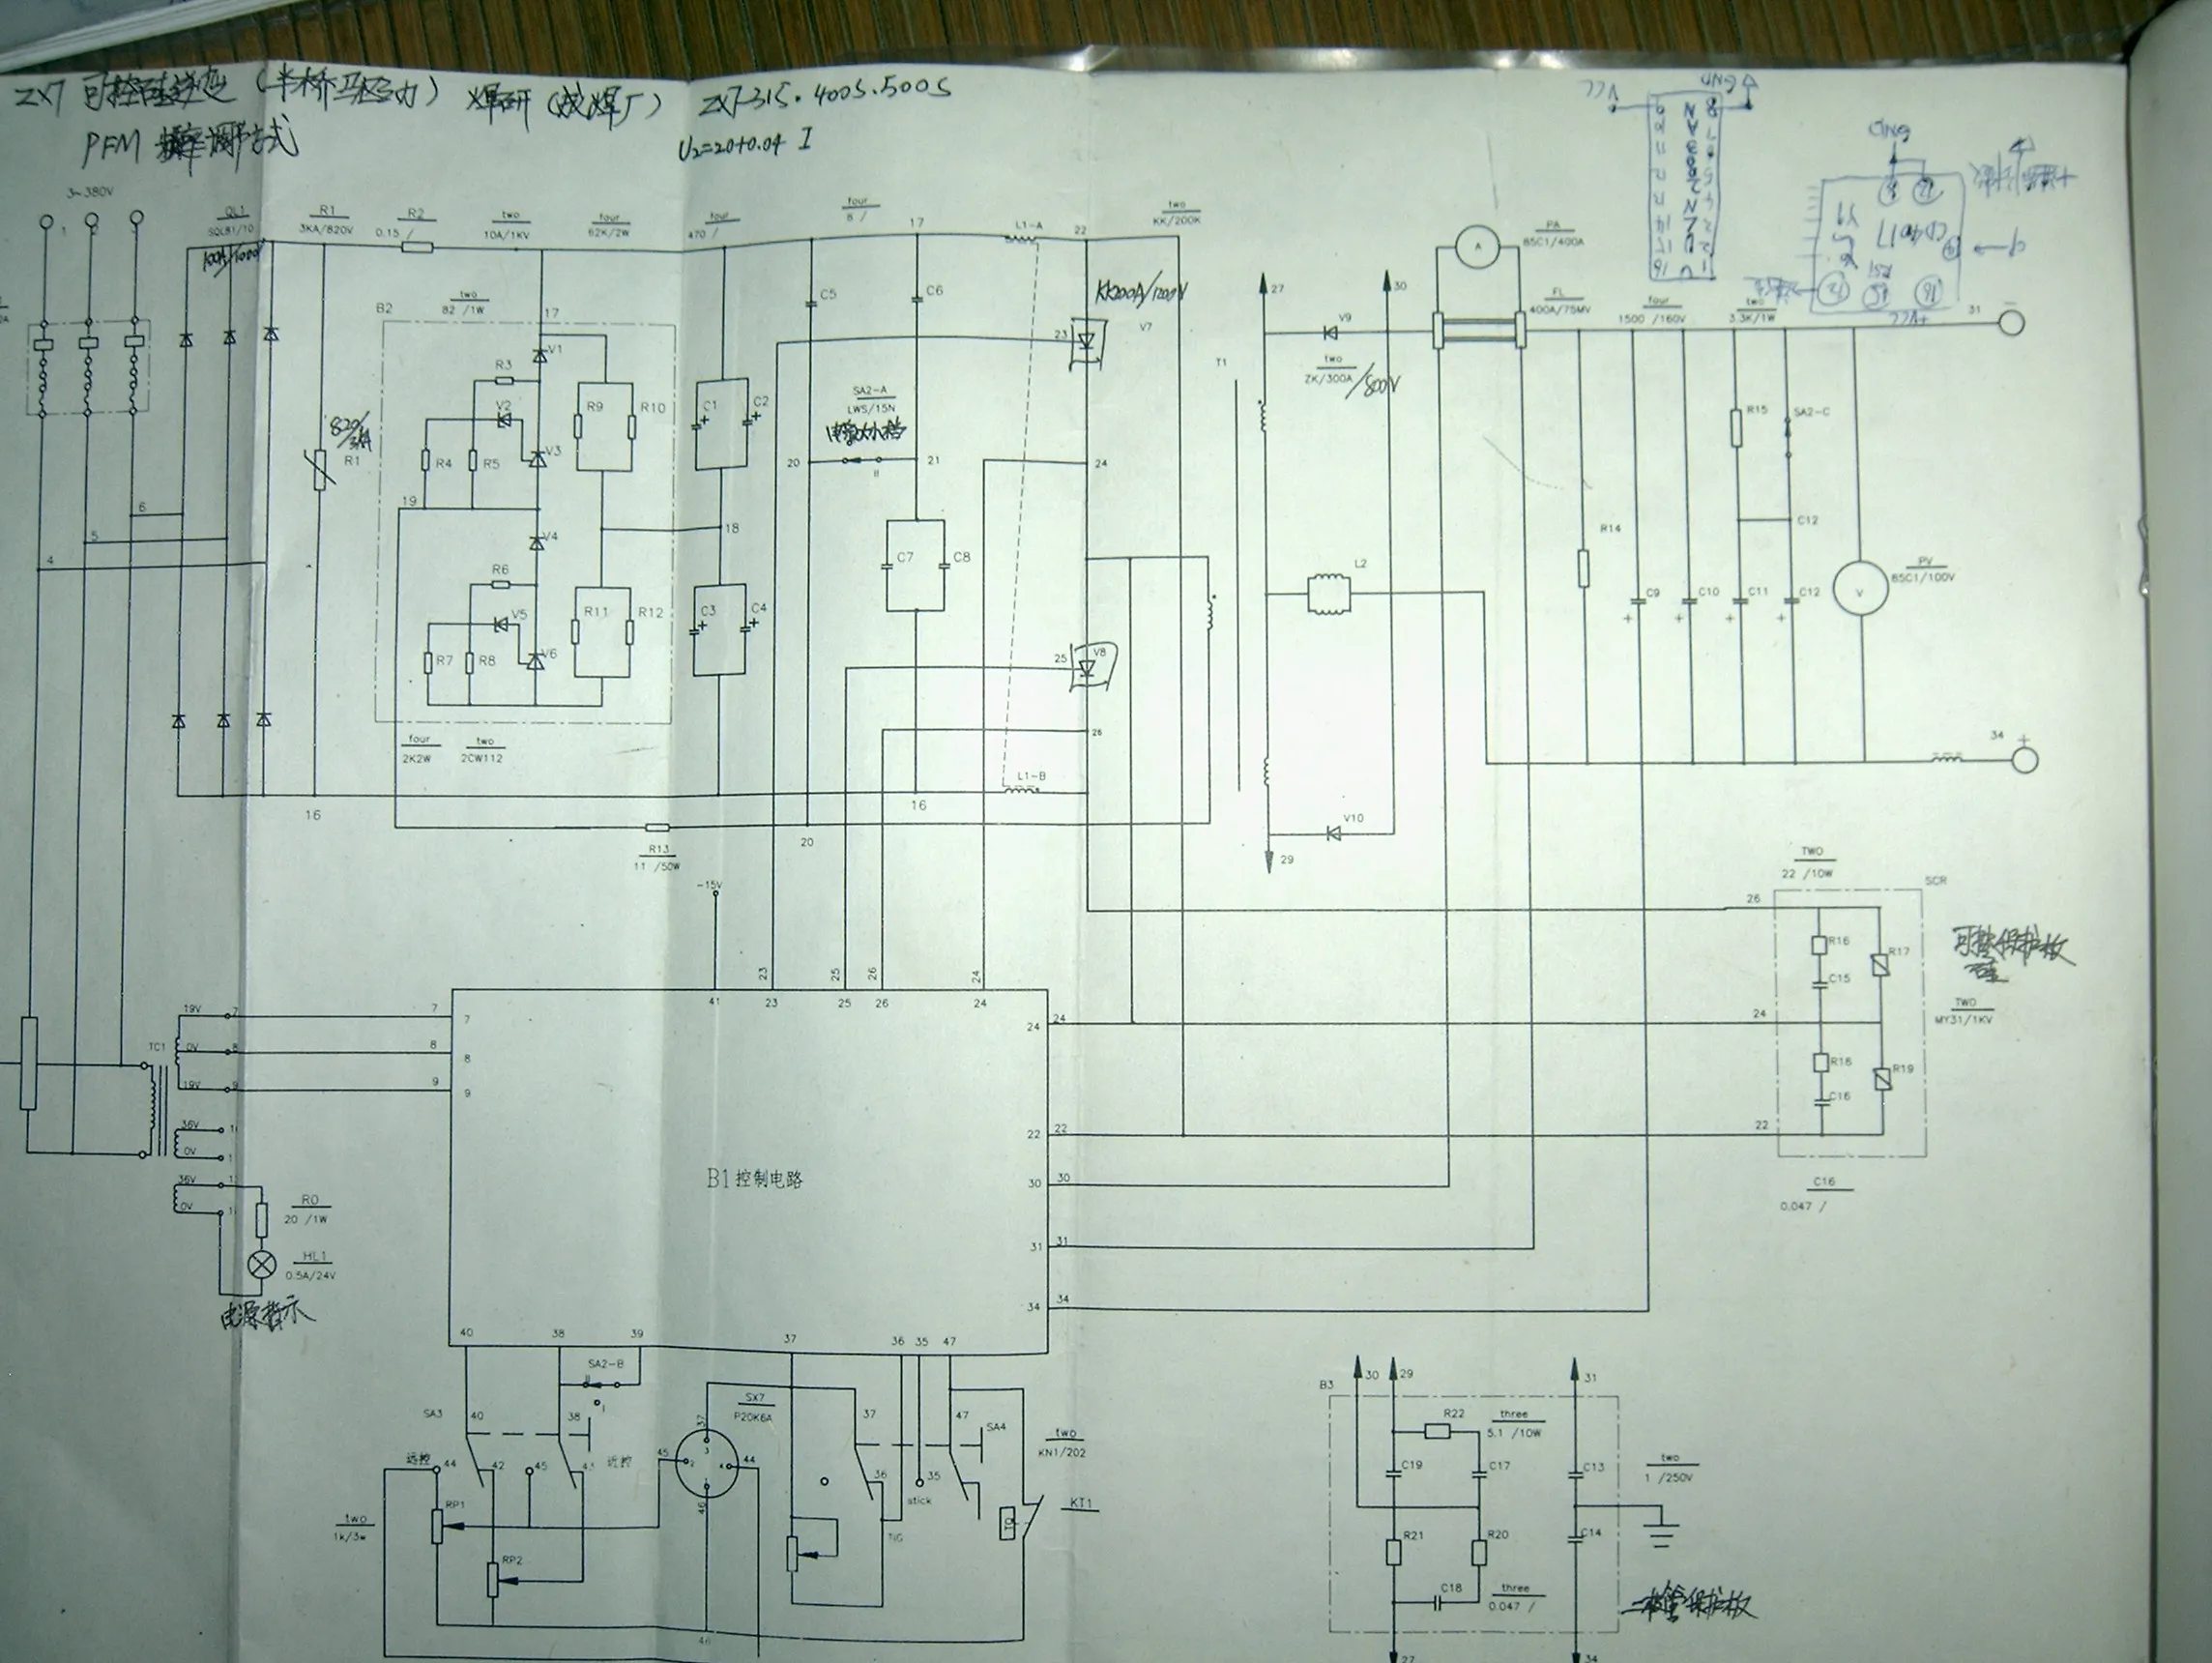 ZX7 可控硅逆变 (半桥 ) 焊研 (成焊厂) ZX7-315. 400S. 500S
PFM 频率调节式
U2=20+0.04 I
3~380V
1
QL1
SQLB1/10
100A/1000V
R1
3KA/820V
R2
0.15 /
two
10A/1KV
four
62K/2W
four
470 /
four
8 /
17
L1-A
22
two
KK/200K
KK200A/1200V
V7
23
B2
two
82 /1W
17
V1
R3
V2
R4
R5
V3
R9
R10
19
V4
R6
V5
R7
R8
V6
R11
R12
four
2K2W
two
2CW112
820/3KA
R1
6
5
4
16
C1
C2
18
C3
C4
C5
C6
SA2-A
LWS/15N
20
21
II
C7
C8
24
25
V8
26
L1-B
16
20
R13
11 /50W
T1
27
30
V9
two
ZK/300A/800V
L2
V10
29
PA
85C1/400A
A
FL
400A/75MV
four
1500 /160V
two
3.3K/1W
31
−
R14
R15
SA2-C
C12
C9
C10
C11
C12
PV
85C1/100V
V
34
+
VCC
GND
9
10
11
12
13
14
15
16
ULN2003AN
8
7
6
5
4
3
2
1
GND
CD4017
RST
+VCC
-15V
41
23
23
25
25
26
26
24
24
TC1
19V
7
7
7
0V
8
8
8
19V
9
9
9
36V
0V
36V
0V
R0
20 /1W
HL1
0.5A/24V
电源指示
B1控制电路
24
24
22
22
30
30
31
31
34
34
TWO
22 /10W
SCR
26
R16
C15
R17
24
R18
C16
R19
22
TWO
MY31/1KV
可控硅保护板
C16
0.047 /
40
38
39
37
36
35
47
SA2-B
II
I
SA3
40
38
远控
44
42
45
43
远控
RP1
two
1k/3w
RP2
SX7
P20K6A
37
3
45
2
4
44
1
46
46
37
36
TIG
35
stick
47
SA4
two
KN1/202
KT1
B3
30
29
31
R22
three
5.1 /10W
C19
C17
R21
R20
C18
three
0.047 /
C13
C14
two
1 /250V
27
34
二极管保护板